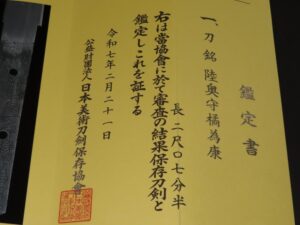 鑑定書
一、刀 銘 陸奥守橘為康
長二尺〇七分半
右は當協會に於て審査の結果保存刀剣と
鑑定しこれを証する
令和七年二月二十一日
公益財団法人 日本美術刀剣保存協會